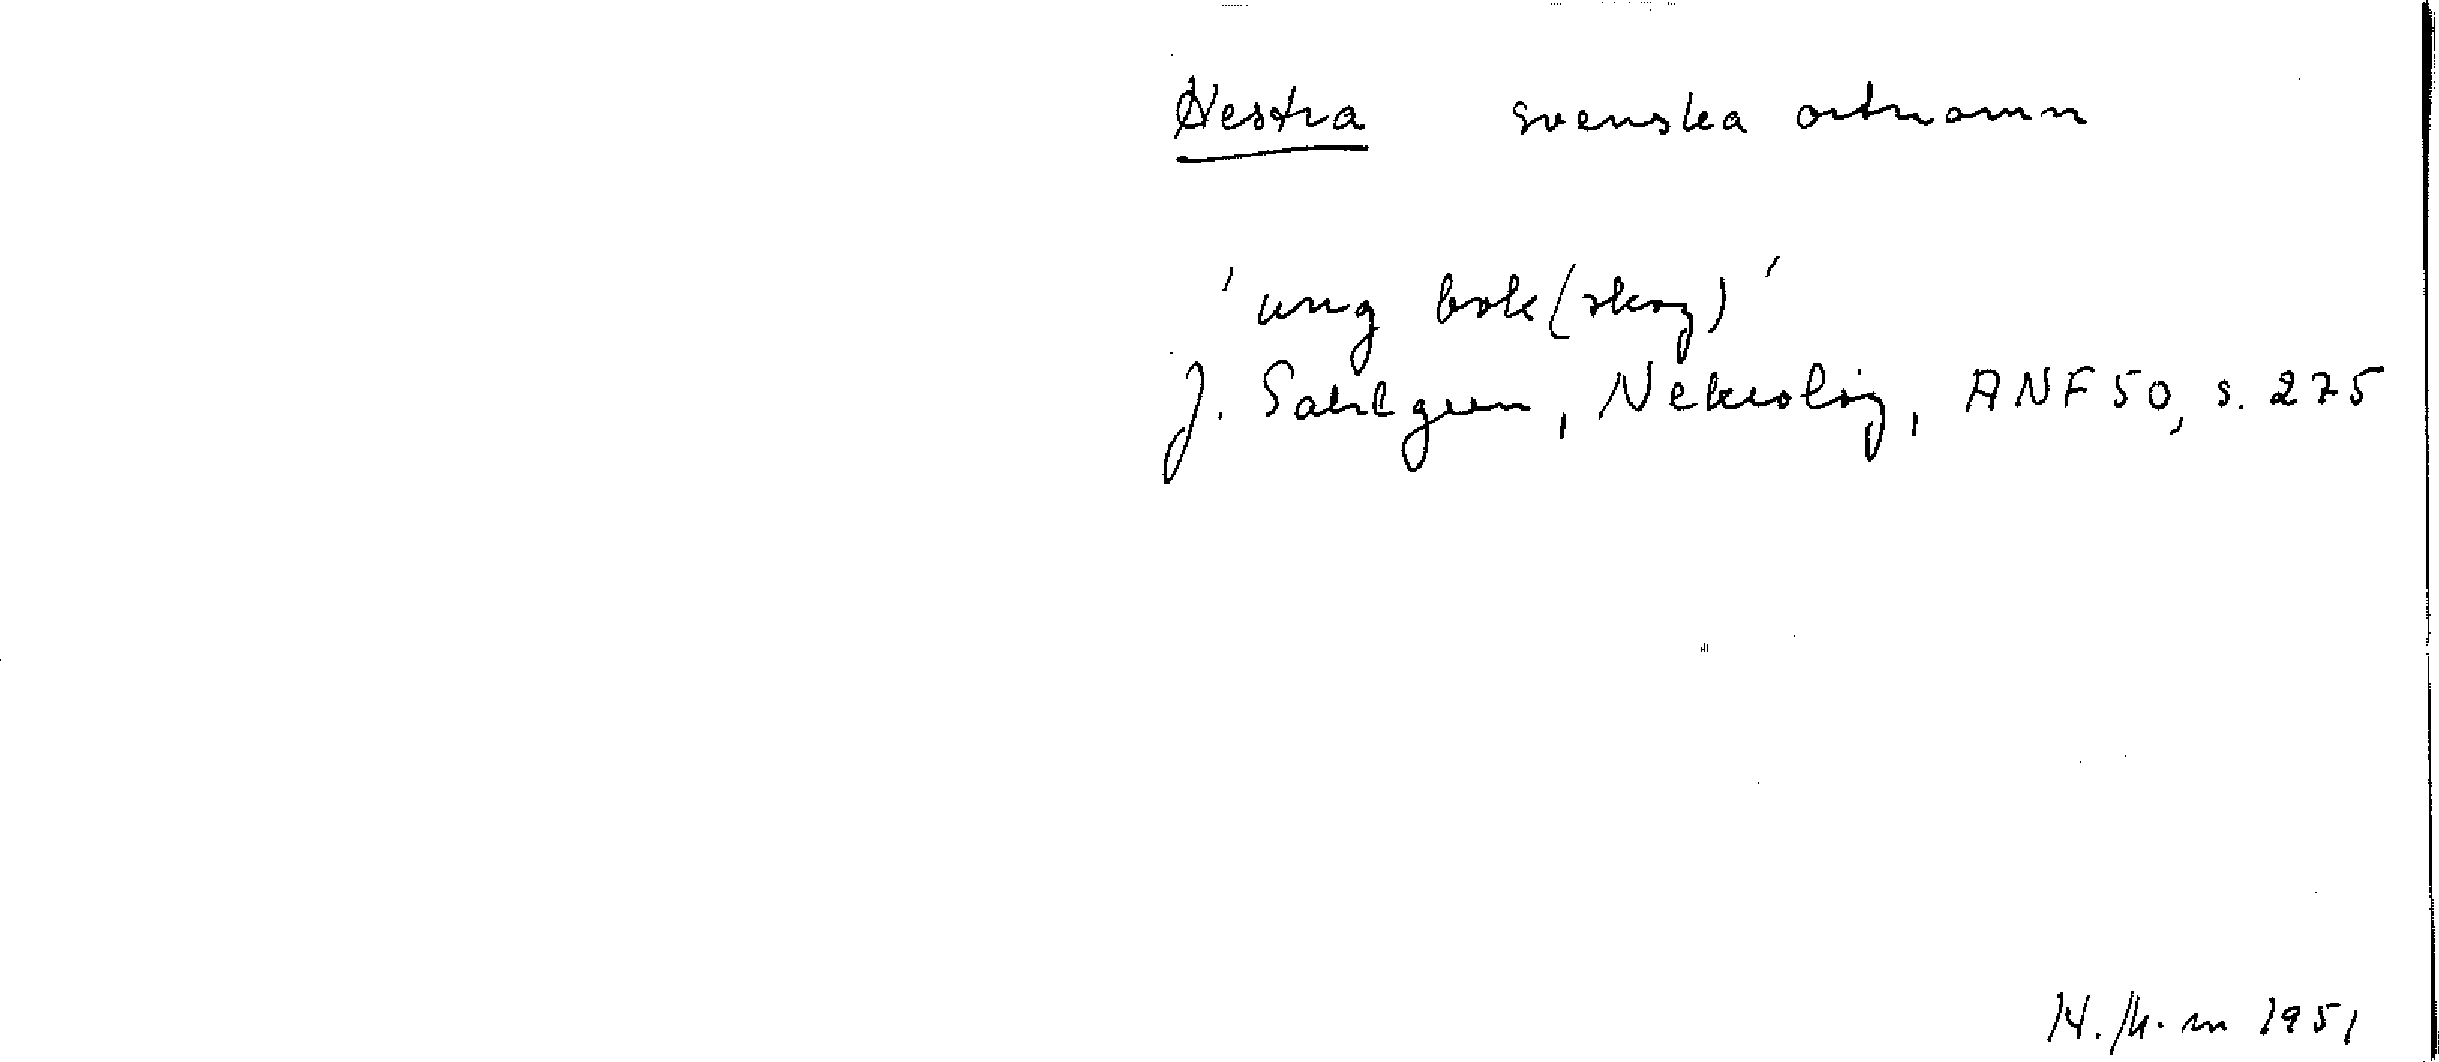 Hestra svenska ortnamn
'ung bok(skog)'
J. Sahlgren, Nekrolog, ANF 50, s. 275
1951